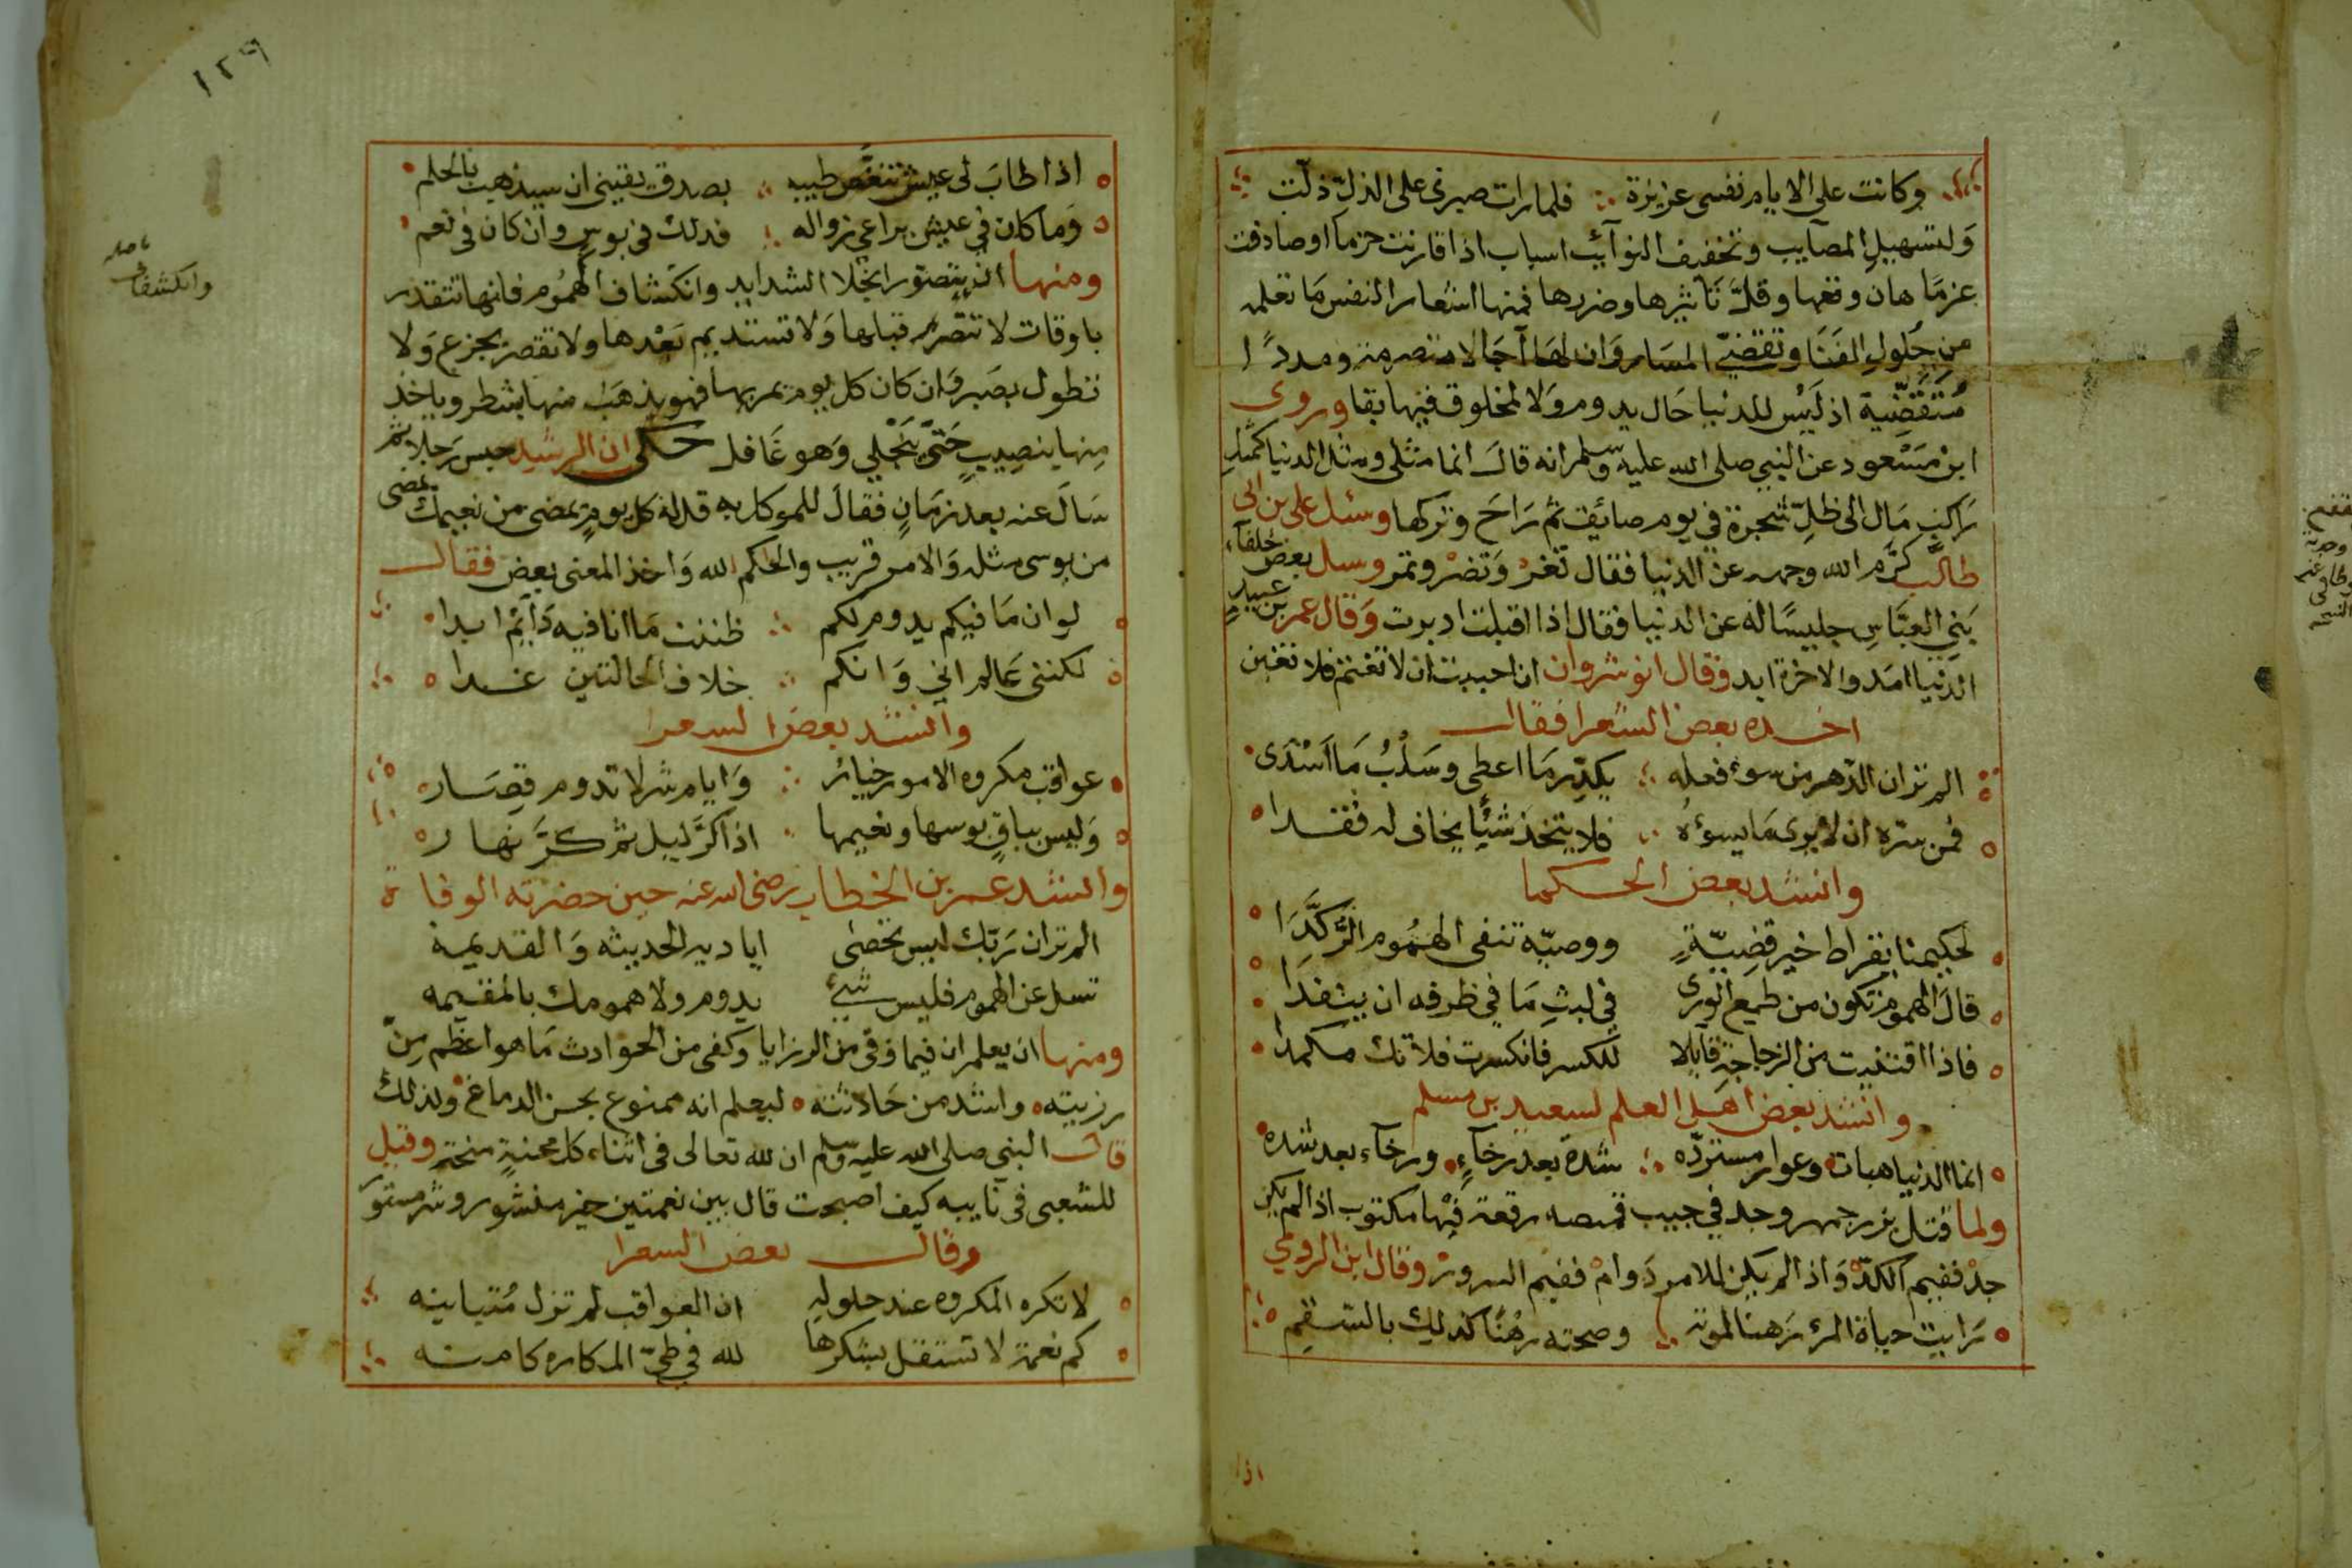 وكانت على الايام نفسى عزيزة ∴ فلما رات صبرى على الذل ذلت
وَلتسهيل المصايب وتخفيف النوآئب اسباب اذا قارنت حزما او صادفت
عزمًا هان وقعها وقلَّ تاثيرها وضررها فمنها اشعار النفس مَا تعلمه
من حُلولِ الفَنَا وتقضِّى المسَار وَان لهَا آجَالا منصرمة ومددًا
مُتَقَضِّية اذ لَيْس للدنيا حَال يدوم وَلا لمخلوق فيها بقا وروى
ابن مَسْعود عن النبي صلى الله عليه وسلم انه قالَ انما مثلى ومثل الدنيا كمثل
رَاكبٍ مَال الى ظلِّ شجرة في يوم صائف ثم رَاحَ وتركها وسئل على بن ابى
طالب كرَّم الله وجهه عن الدنيا فقال تغرْ وَتضرْ وتمر وسل بعض خلفآء
بَنِي العبَّاسِ جليسًا له عن الدنيا فقال اذا اقبلت ادبرت وَقال عمر بن عبيد
الدنيا امَد والاخرة ابد وقال انوشروان ان احببت ان لا تغتم فلا تقتن
اخـــذه بعض الشعرا فقال
الم تر ان الدّهر من سوء فعله ∴ يكدّر مَا اعطى وسَلْبُ مَا اَسْدَى
فمن سرّه ان لا يرى مَا يسوءُه ∴ فلا يتخذ شئًا يخاف له فقـدا
وانشد بعض الحـكما
لحكيمنا بقراط خير قضِيّةٍ ووصيّه تنفى الهمُوم الرُّكَّدَا
قالَ الهموم تكون من طمع الورى في لبثِ مَا في ظرفه ان ينفدا
فاذا اقتنيت من الزجاجة قابلا للكسر فانكسرت فلا تك مـكمدا
وانشد بعض اهَل العـلم لسعيد بن مسلم
انما الدنيا هبات وعوارٍ مستردّه ∴ شدة بعد رخآءٍ ورخآء بعد شده
ولما قتل بزرجمهر وجد في جيب قميصه رقعة فيْها مكتوب اذا لم يكن
جدْ ففيم الكدّ وَاذا لم يكن للامر دَوامْ ففيم السرورْ وقال ابن الرومي
رَايت حياة المرء رَهنا لموته وصحته رهْنًا كذلك بالسـقم
اذا
١٢٩
اذا طابَ لى عيش تنغَّص طيبه ∴ بصدق يقينى ان سيذهب كالحلم
وَما كان في عيش يراعي زواله ∴ فذلك فى بوسٍ وان كان فى نعم
ومنها ان يتصوّر انجلا الشدايد وانكشاف الهمُوم فانها تتقدر
باوقات لا تتصَرم قبلها وَلا تستديم بَعْدها ولا تقصر بجزع وَلا
تطول بصَبر وَان كان كل يوم يمر بها فهو يذهَبَ منها بشطر وياخذ
مِنها بنصِيبٍ حَتىّ تنْجَلي وَهو غَافل حكى ان الرشيد حبس رَجلا ثم
سَالَ عنه بعد زمَانٍ فقالَ للموكل به قل له كل يومٍ يمضى من نعيمك يمضى
من بوسى مثله وَالامر قريب والحكم لله وَاخذ المعنى بعض فقال
لو ان مَا فيكم يدوم لكم ∴ ظننت مَا انا فيه دَآئِم ابدا
لكننى عَالم اني وَانكم ∴ خلاف الحالتين غـــدا
وانشد بعض الشعرا
عواقب مكروه الامور خيائر ∴ وَايام شر لا تدوم قصَـار
وَليس بباقٍ بوسها ونعيمها ∴ اذا كرَّ ليل ثم كرَّ نهار
وانشد عمر بن الخطاب رضى الله عنه حين حضرته الوفاة
الم تر ان رَبّك ليس تحصٰى اياديه الحديثه وَالقديمـة
تسل عن الهموم فليس شيءٌ يدوم ولا همومك بالمقيمه
ومنها ان يعلم ان فيما وقى من الرزايا وكفى من الحوادث مَا هو اعظم مِنْ
رزيته واشد من حَادثته ليعلم انه ممنوع بحسن الدفاع ولذلك
قال النبي صلى الله عليه وسلم ان لله تعالى فى اثناء كل محنةٍ منحة وقيل
للشعبى فى نايبه كيف اصبحت قال بين نعمتين خير منشور وشر مستور
وقال بعض الشعرا
لا تكره المكروه عند حلولهِ ان العواقب لم تزل مُتباينه
كم نعمة لا تستقل بشكرها لله في طيّ المـكاره كامنـه
وانكشاف